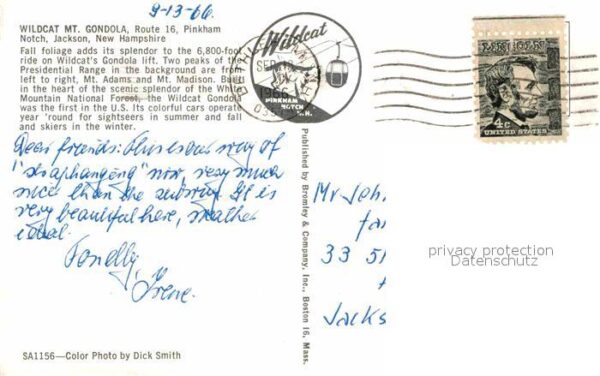 9-13-66.
WILDCAT MT. GONDOLA, Route 16, Pinkham
Notch, Jackson, New Hampshire
Fall foliage adds its splendor to the 6,800-foot
ride on Wildcat's Gondola lift. Two peaks of the
Presidential Range in the background are from
left to right, Mt. Adams and Mt. Madison. Built
in the heart of the scenic splendor of the White
Mountain National Forest, the Wildcat Gondola
was the first in the U.S. Its colorful cars operate
year 'round for sightseers in summer and fall
and skiers in the winter.
Dear friends: this is our way of
"straphanging" now, very much
nicer than the subway. It is
very beautiful here, weather
ideal.
Fondly,
Irene.
SA1156—Color Photo by Dick Smith
Published by Bromley & Company, Inc., Boston 16, Mass.
Wildcat
PINKHAM
NOTCH
N.H.
SEP
1966
LINCOLN
4c
UNITED STATES
Mr Joh.
33 51
Jacks
privacy protection
Datenschutz